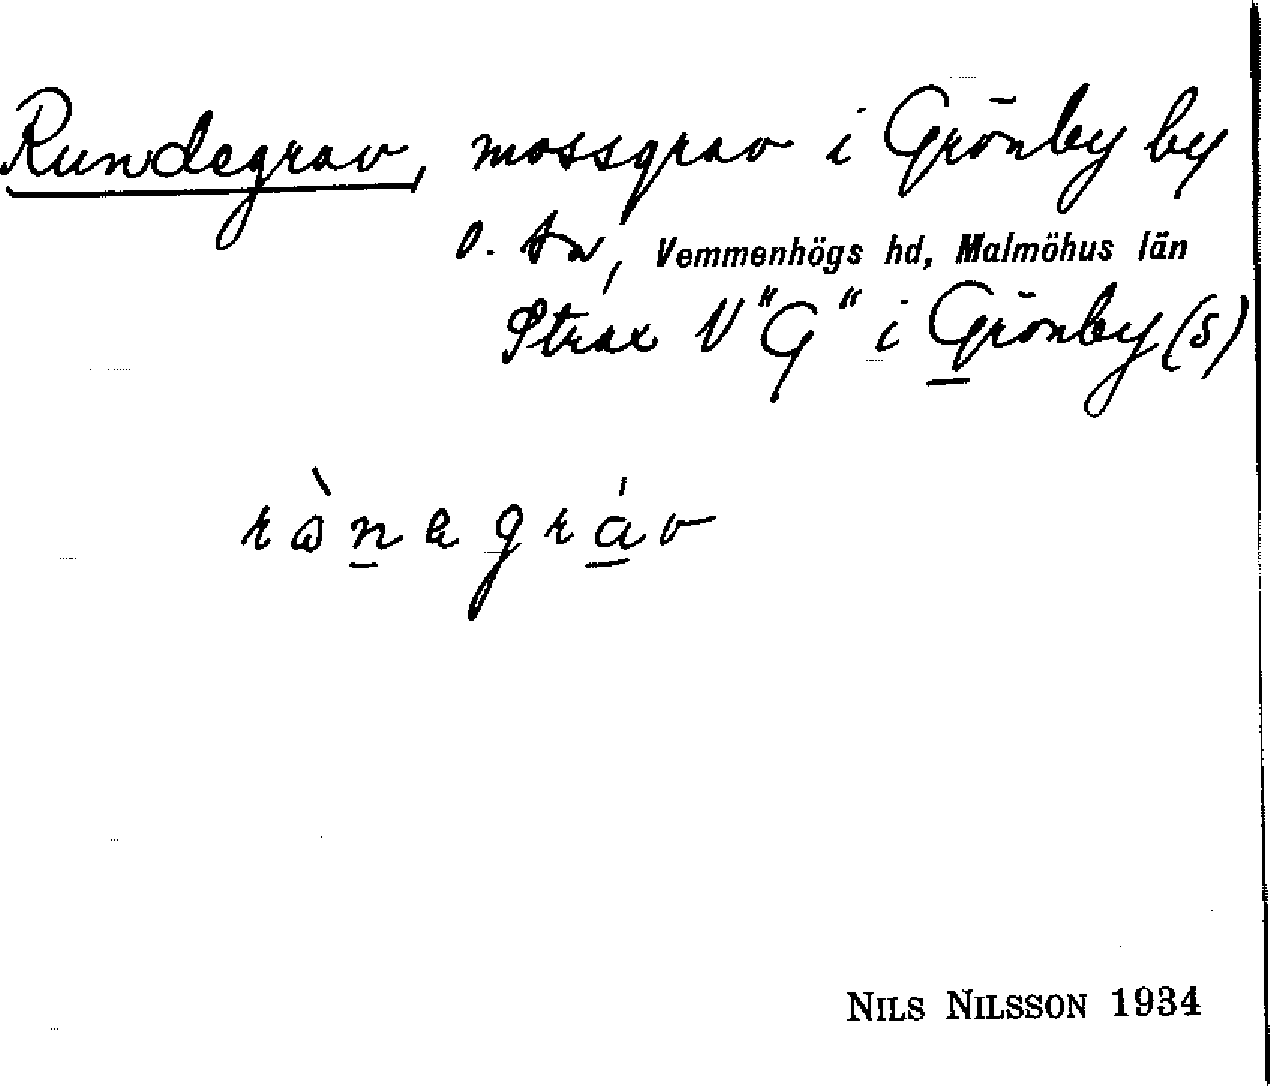 Rundegrav, mossgrav i Grönby by
o. sn, Vemmenhögs hd, Malmöhus län
Strax V "G" i Grönby (s)
rànegráv
NILS NILSSON 1934